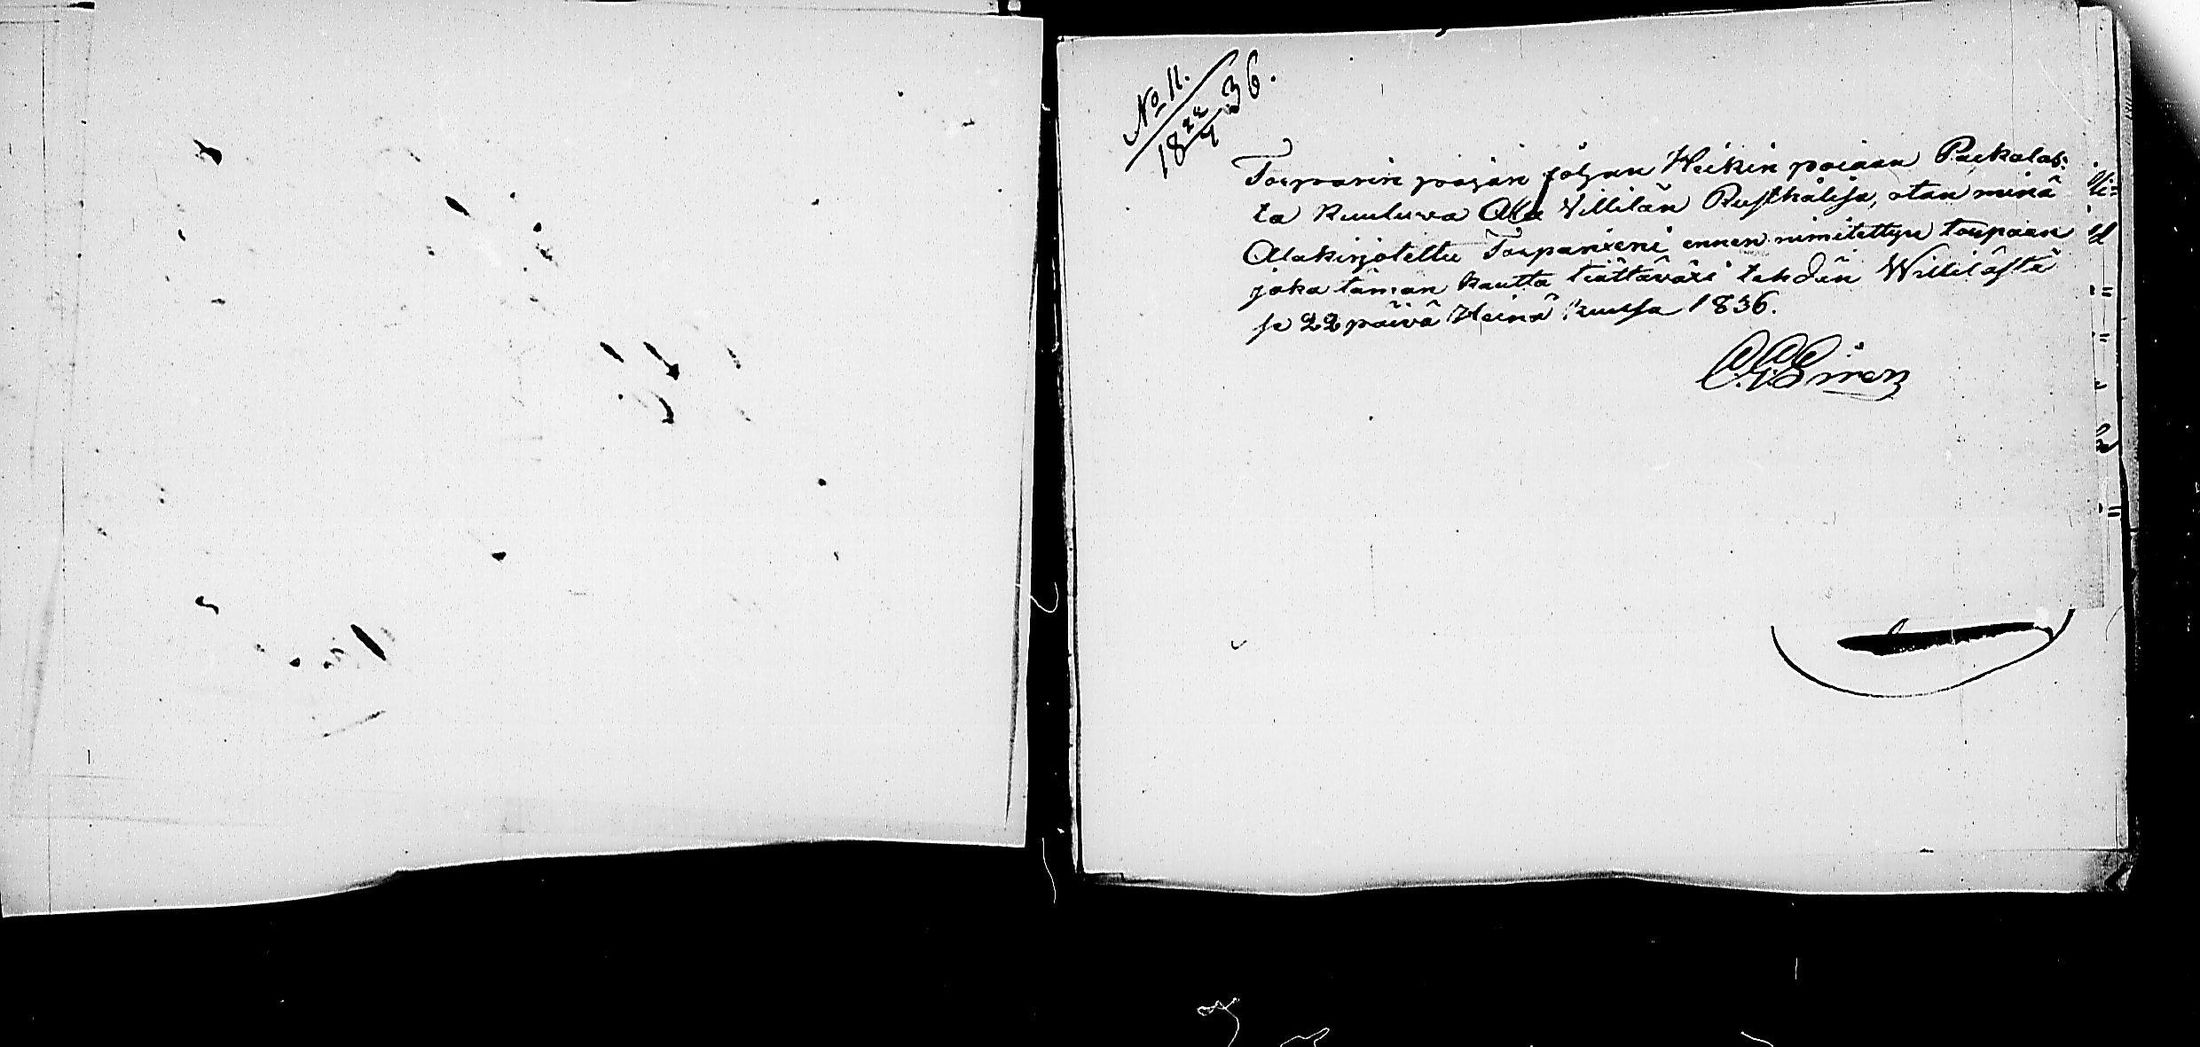 No 11.
18 22/7 36.
Torparin pojan Johan Heikin poiaan Paekalas:
ta kuuluva Ala Villilän Rusthålisa, otan minä
Alakirjotettu Torparixeni ennen nimitettyn torpaan
joka täman kautta tiättäväxi tehdän Willilästä
se 22 päivä Heinä kuussa 1836.